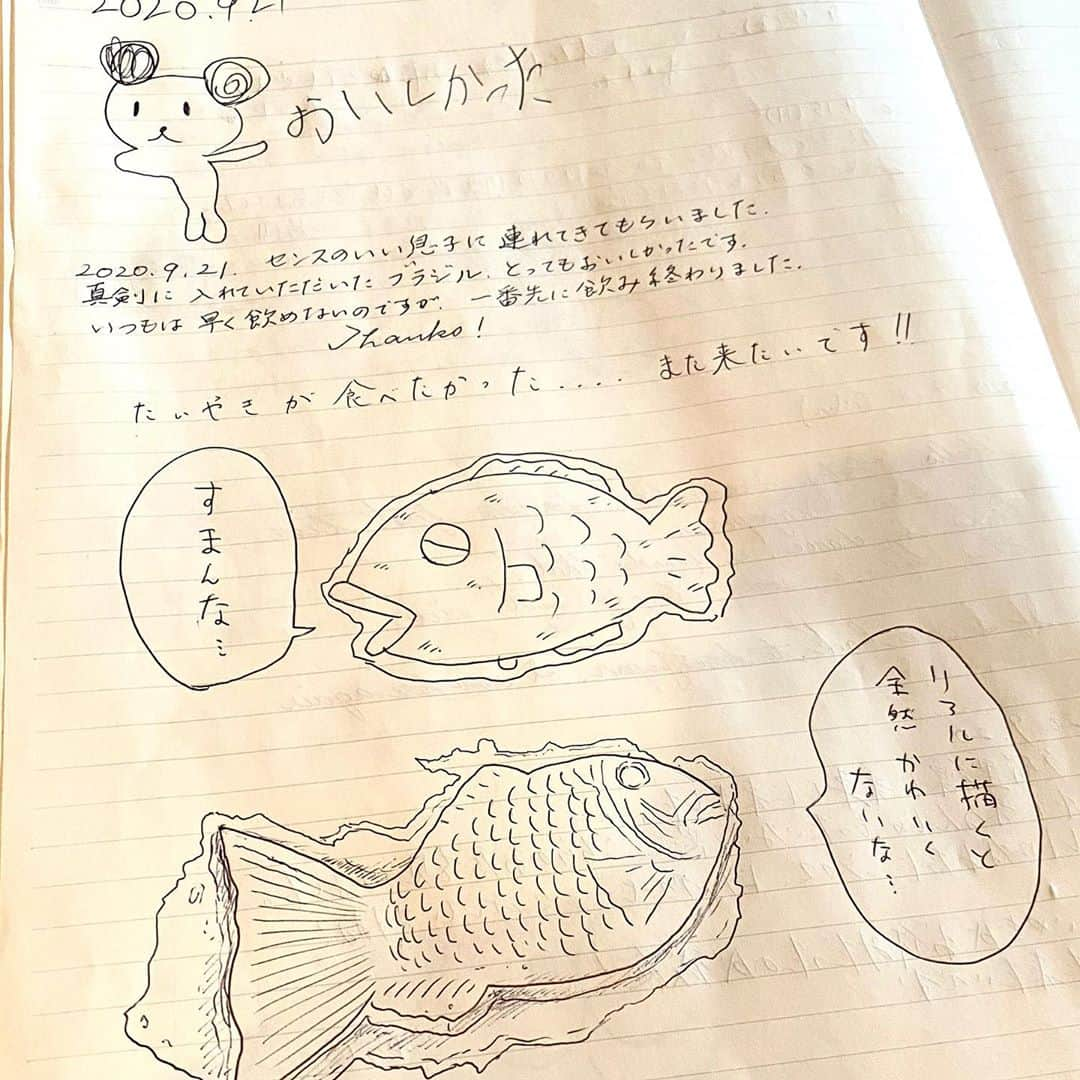 2020.9.21
おいしかった
2020.9.21. センスのいい息子に連れてきてもらいました.
真剣に入れていただいたブラジル、とってもおいしかったです.
いつもは早く飲めないのですが、一番先に飲み終わりました.
Thanks!
たいやきが食べたかった.... また来たいです!!
すまんな…
リアルに描くと
全然かわいく
ないな…